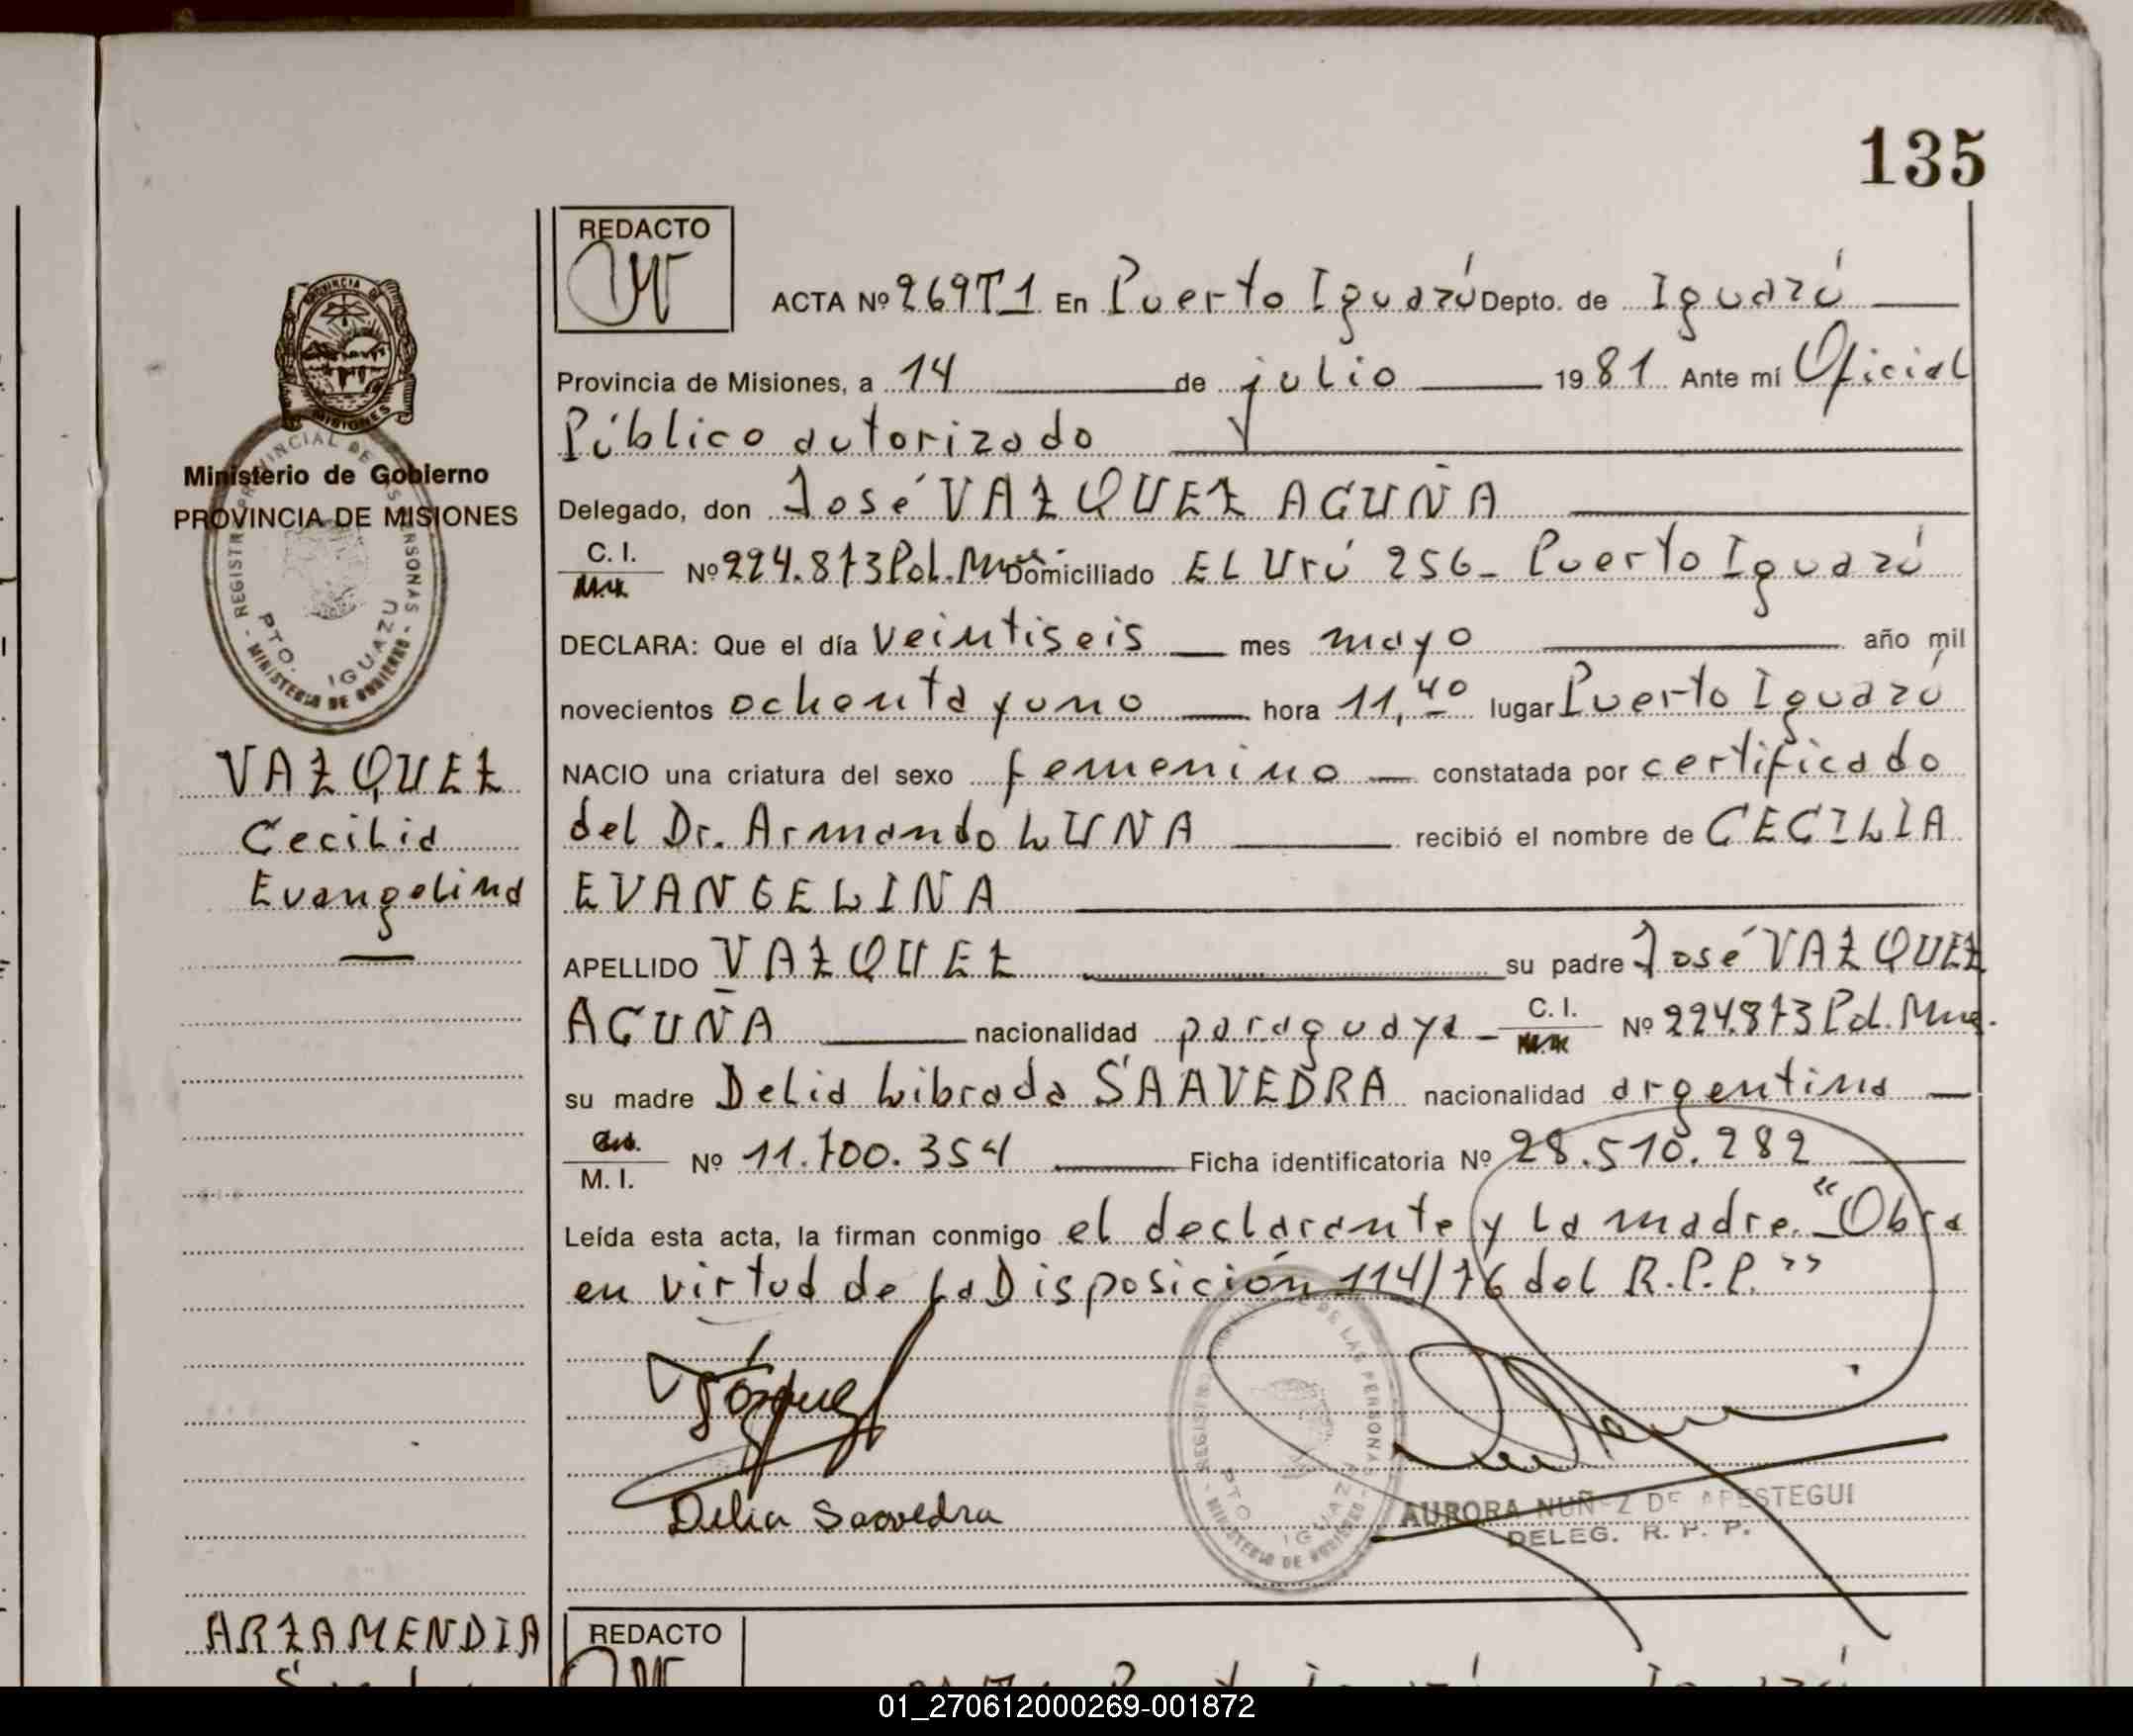 135
REDACTO
ACTA Nº 269T1 En Puerto Iguazú Depto. de Iguazú
Provincia de Misiones, a 14 de julio 1981 Ante mí Oficial
Público autorizado
Ministerio de Gobierno
PROVINCIA DE MISIONES
REGISTRO PROVINCIAL DE LAS PERSONAS
MINISTERIO DE GOBIERNO
PTO. IGUAZU
Delegado, don José VAZQUEZ ACUÑA
C. I. Nº 224.873 Pol. Mnes Domiciliado EL Urú 256_ Puerto Iguazú
DECLARA: Que el día veintiseis mes mayo año mil
novecientos ochenta y uno hora 11,40 lugar Puerto Iguazú
VAZQUEZ
Cecilia
Evangelina
NACIO una criatura del sexo femenino constatada por certificado
del Dr. Armando LUNA recibió el nombre de CECILIA
EVANGELINA
APELLIDO VAZQUEZ su padre José VAZQUEZ
ACUÑA nacionalidad paraguaya C. I. Nº 224.873 Pol. Mnes.
su madre Delia Librada SAAVEDRA nacionalidad argentina
M. I. Nº 11.700.354 Ficha identificatoria Nº 28.510.282
Leída esta acta, la firman conmigo el declarante y la madre._ "Obra
en virtud de la Disposición 114/76 del R.P.P."
Delia Saavedra
REGISTRO PROVINCIAL DE LAS PERSONAS
MINISTERIO DE GOBIERNO
PTO. IGUAZU
AURORA NUÑEZ DE APESTEGUI
DELEG. R. P. P.
ARZAMENDIA
REDACTO
01_270612000269-001872